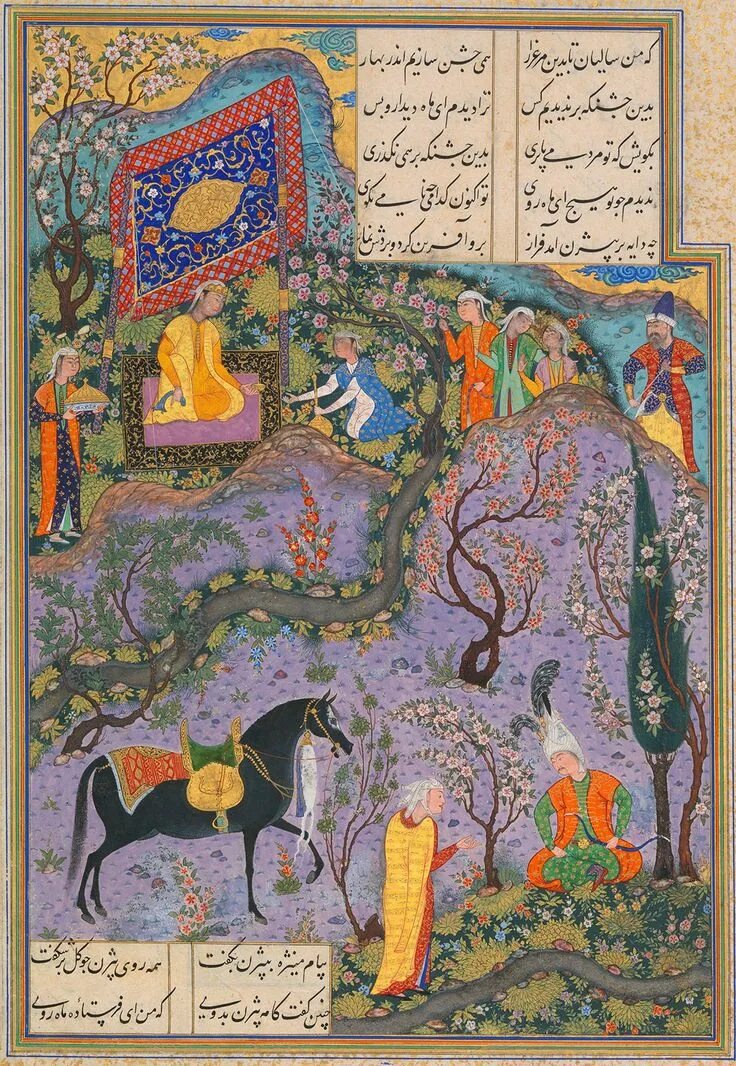 که من سالیان تا بدین مرغزار همی جشن سازیم اندر بهار
بدین جشنکه بر ندیدیم کس ترا دیدم ای ماه دیدار و بس
بکویش که تو مردمی یا پری بدین جشنکه بر همی نکذری
ندیدم چو تو هیچ ای ماه روی تو اکنون کدامی بکوی
چه دایه بر بیژن آمد فراز برو آفرین کرد و بردش نماز
پیام منیژه ببیژن بکفت همه روی بیژن چو کل بر شکفت
چنین کفت بیژن بدوی که من ای فرستاده ماه روی